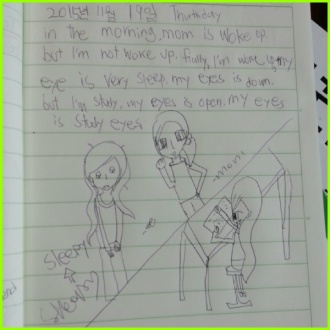 2015년 11월 19일 Thursday
in the morning, mom is woke up.
but I'm not woke up. finally, I'm woke up my
eye is very sleep. my eyes is down.
but I'm study, my eyes is open. my eyes
is study eyes
mom
sleepy